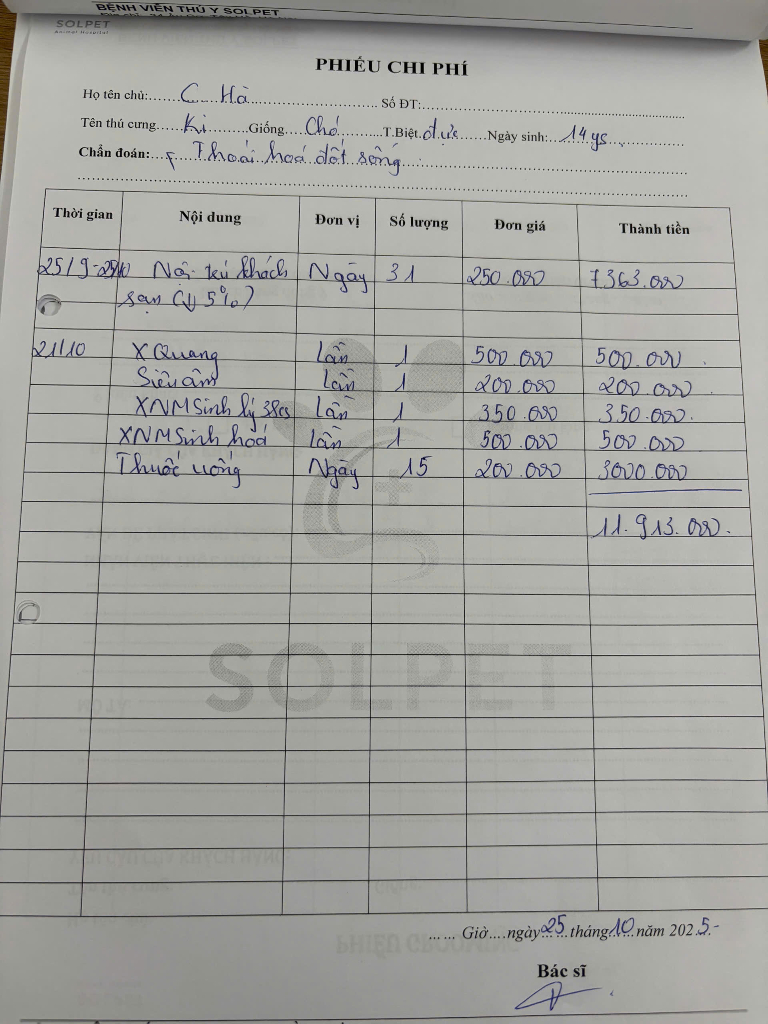 BỆNH VIỆN THÚ Y SOLPET
SOLPET
Animal Hospital
PHIẾU CHI PHÍ
Họ tên chủ:.......C Hà.......... Số ĐT:..........
Tên thú cưng....Ki.......Giống....Chó.......T.Biệt đực......Ngày sinh:...14ys...
Chẩn đoán:... Thoái hoá đốt sống
Thời gian Nội dung Đơn vị Số lượng Đơn giá Thành tiền
25/9-25/10 Nội trú khách Ngày 31 250.000 7363.000
sạn (↓ 5%)
21/10 X Quang Lần 1 500.000 500.000
Siêu âm Lần 1 200.000 200.000
XNM Sinh lý 38cs Lần 1 350.000 350.000
XNM Sinh hoá Lần 1 500.000 500.000
Thuốc uống Ngày 15 200.000 3000.000
11.913.000
SOLPET
...... Giờ....ngày 25 tháng 10 năm 2025
Bác sĩ